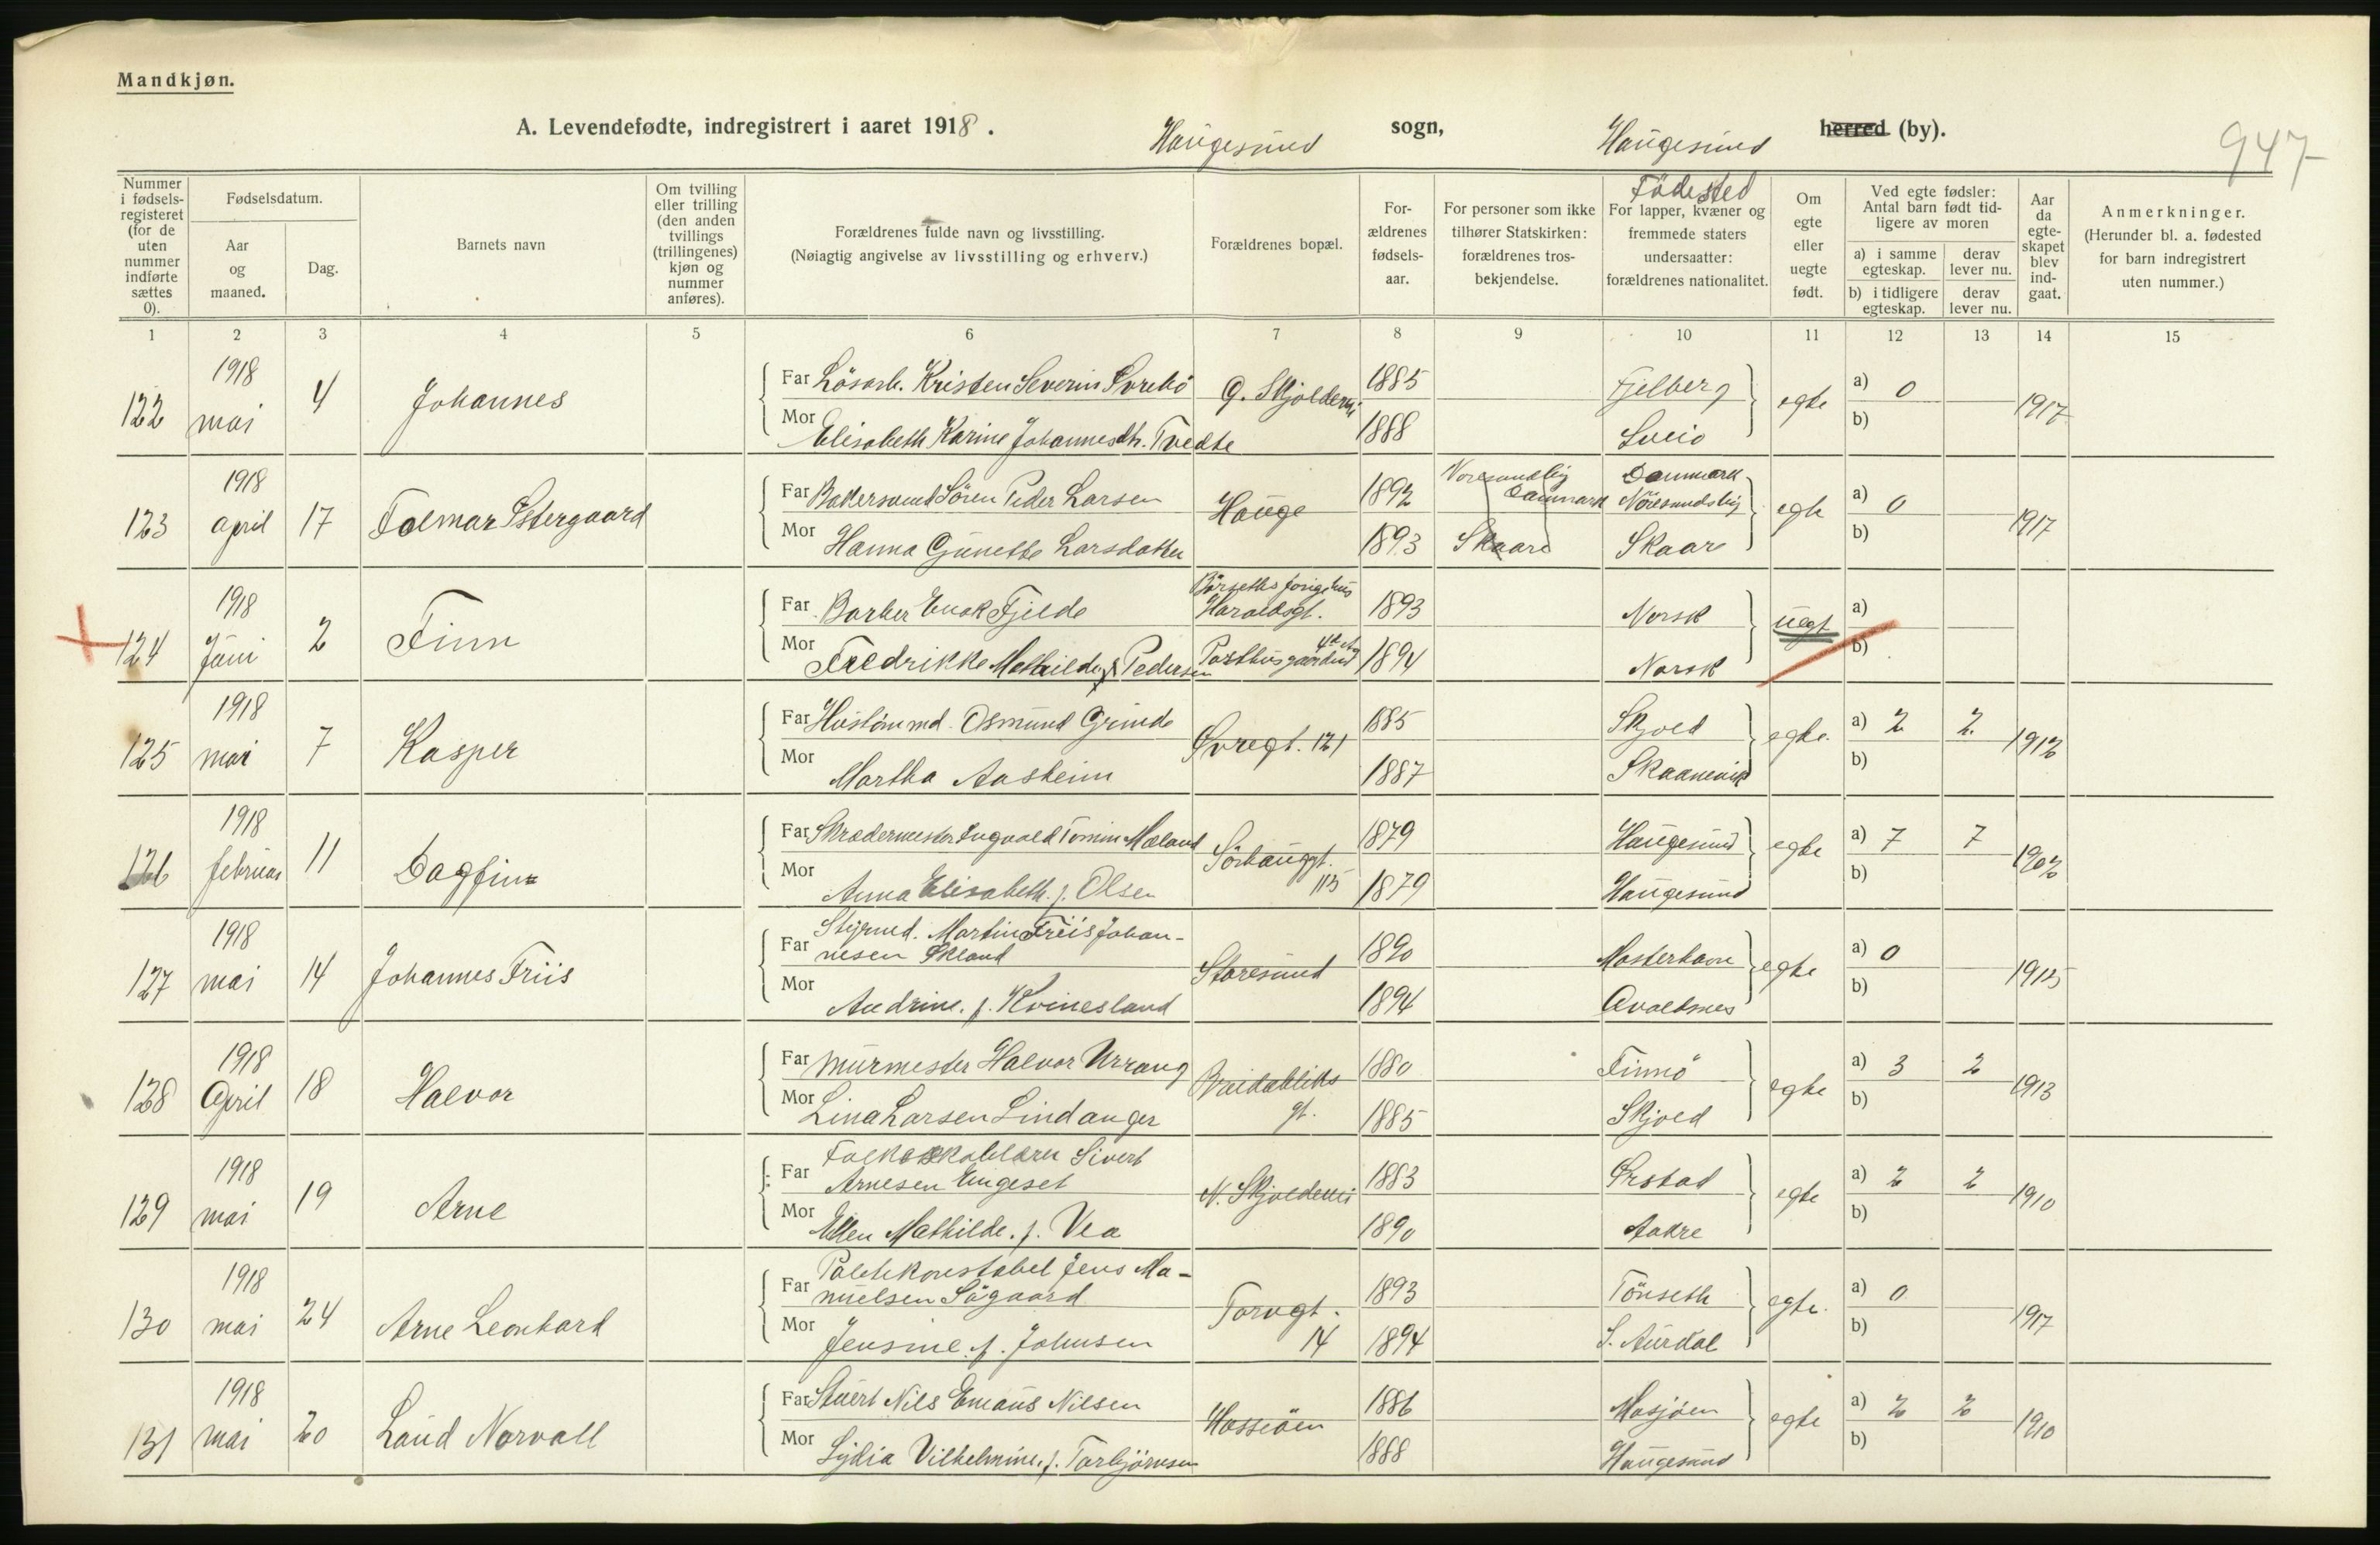 Mandkjøn.
A. Levendefødte, indregistrert i aaret 1918. Haugesund sogn, Haugesund herred (by).
947
Nummer i fødsels-registeret (for de uten nummer indførte sættes 0).
Fødselsdatum.
Aar og maaned.
Dag.
Barnets navn
Om tvilling eller trilling (den anden tvillings (trillingenes) kjøn og nummer anføres).
Forældrenes fulde navn og livsstilling.
(Nøiagtig angivelse av livsstilling og erhverv.)
Forældrenes bopæl.
For-ældrenes fødsels-aar.
For personer som ikke tilhører Statskirken: forældrenes tros-bekjendelse.
Födested
For lapper, kvæner og fremmede staters undersaatter: forældrenes nationalitet.
Om egte eller uegte født.
Ved egte fødsler: Antal barn født tid-ligere av moren
a) i samme egteskap.
derav lever nu.
b) i tidligere egteskap.
derav lever nu.
Aar da egte-skapet blev ind-gaat.
Anmerkninger.
(Herunder bl. a. fødested for barn indregistrert uten nummer.)
1 2 3 4 5 6 7 8 9 10 11 12 13 14 15
122 1918 mai 4 Johannes
Far Lösarb. Kristen Severin G. Skjoldevei 1885 Fjelberg egte a) 0 1917
Mor Elisabeth Karine Johannesdtr. Tvedte 1888 Sveio b)
123 1918 april 17 Folmar Østergaard
Far Bakersvend Sören Peder Larsen Hauge 1892 Danmark Danmark Nöresundsby egte a) 0 1917
Mor Hanna Gunette Larsdatter 1893 Skaare Skaare b)
124 1918 Juni 2 Finn
Far Barber Enok Fjelde Haraldsgt. 1893 Norsk uegt a)
Mor Fredrikke Mathilde Pedersen Posthusgaarden 1894 Norsk b)
125 1918 mai 7 Kasper
Far Osmund Grinde Øvregt. 121 1885 Skjold egte a) 2 2 1912
Mor Martha Aasheim 1887 Skaanevik b)
126 1918 februar 11 Dagfinn
Far Skrædermester Ingvald Tomin Mæland Sörhauggt. 115 1879 Haugesund egte a) 7 7 1902
Mor Anna Elisabeth f. Olsen 1879 Haugesund b)
127 1918 mai 14 Johannes Friis
Far Styrmd. Martin Friis Johan-
nesen Økland Storesund 1890 Mosterhavn egte a) 0 1915
Mor Andrine f. Kvinesland 1894 Avaldsnes b)
128 1918 April 18 Halvor
Far Murmester Halvor Urrang Breidabliks gt. 1880 Finnö egte a) 3 2 1913
Mor Lina Larsen Lindanger 1885 Skjold b)
129 1918 mai 19 Arne
Far Folkeskolelærer Sivert
Arnesen Engeset N. Skjoldevei 1883 Ørstad egte a) 2 2 1910
Mor Ellen Mathilde f. Vea 1890 Aakre b)
130 1918 mai 24 Arne Leonhard
Far Politikonstabel Jens Ma-
nuelsen Sögaard Torvgt. 14 1893 Tönseth egte a) 0 1917
Mor Jensine f. Johnsen 1894 S. Aurdal b)
131 1918 mai 20 Laud Norvall
Far Stuert Nils Emaus Nilsen Hasseöen 1886 Mosjöen egte a) 2 2 1910
Mor Lydia Vilhelmine f. Torbjörnsen 1888 Haugesund b)